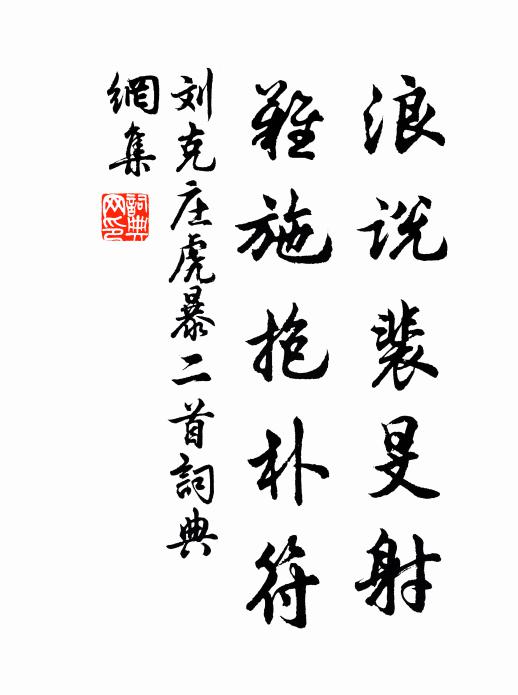 浪说裴旻射
難施抱朴符
刘克庄虎暴二首詞典
網集
詞典
网印